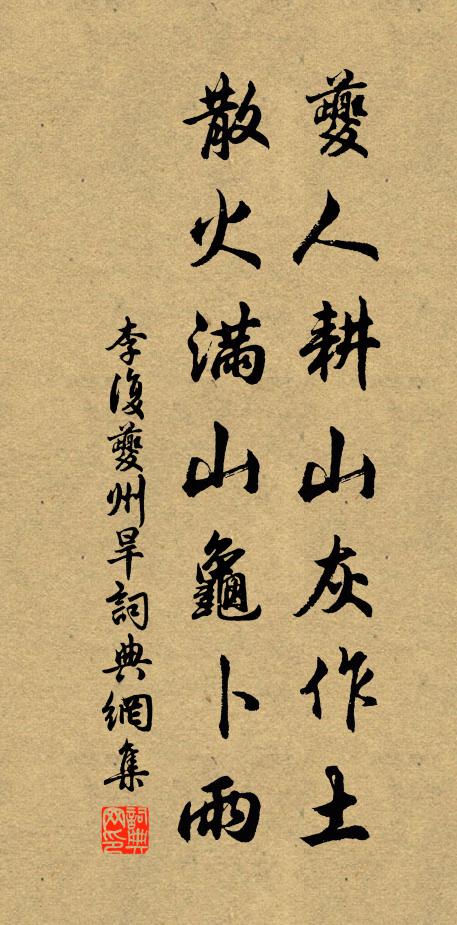 夔人耕山灰作土
散火滿山龜卜雨
李復夔州旱詞典網集
詞典網印